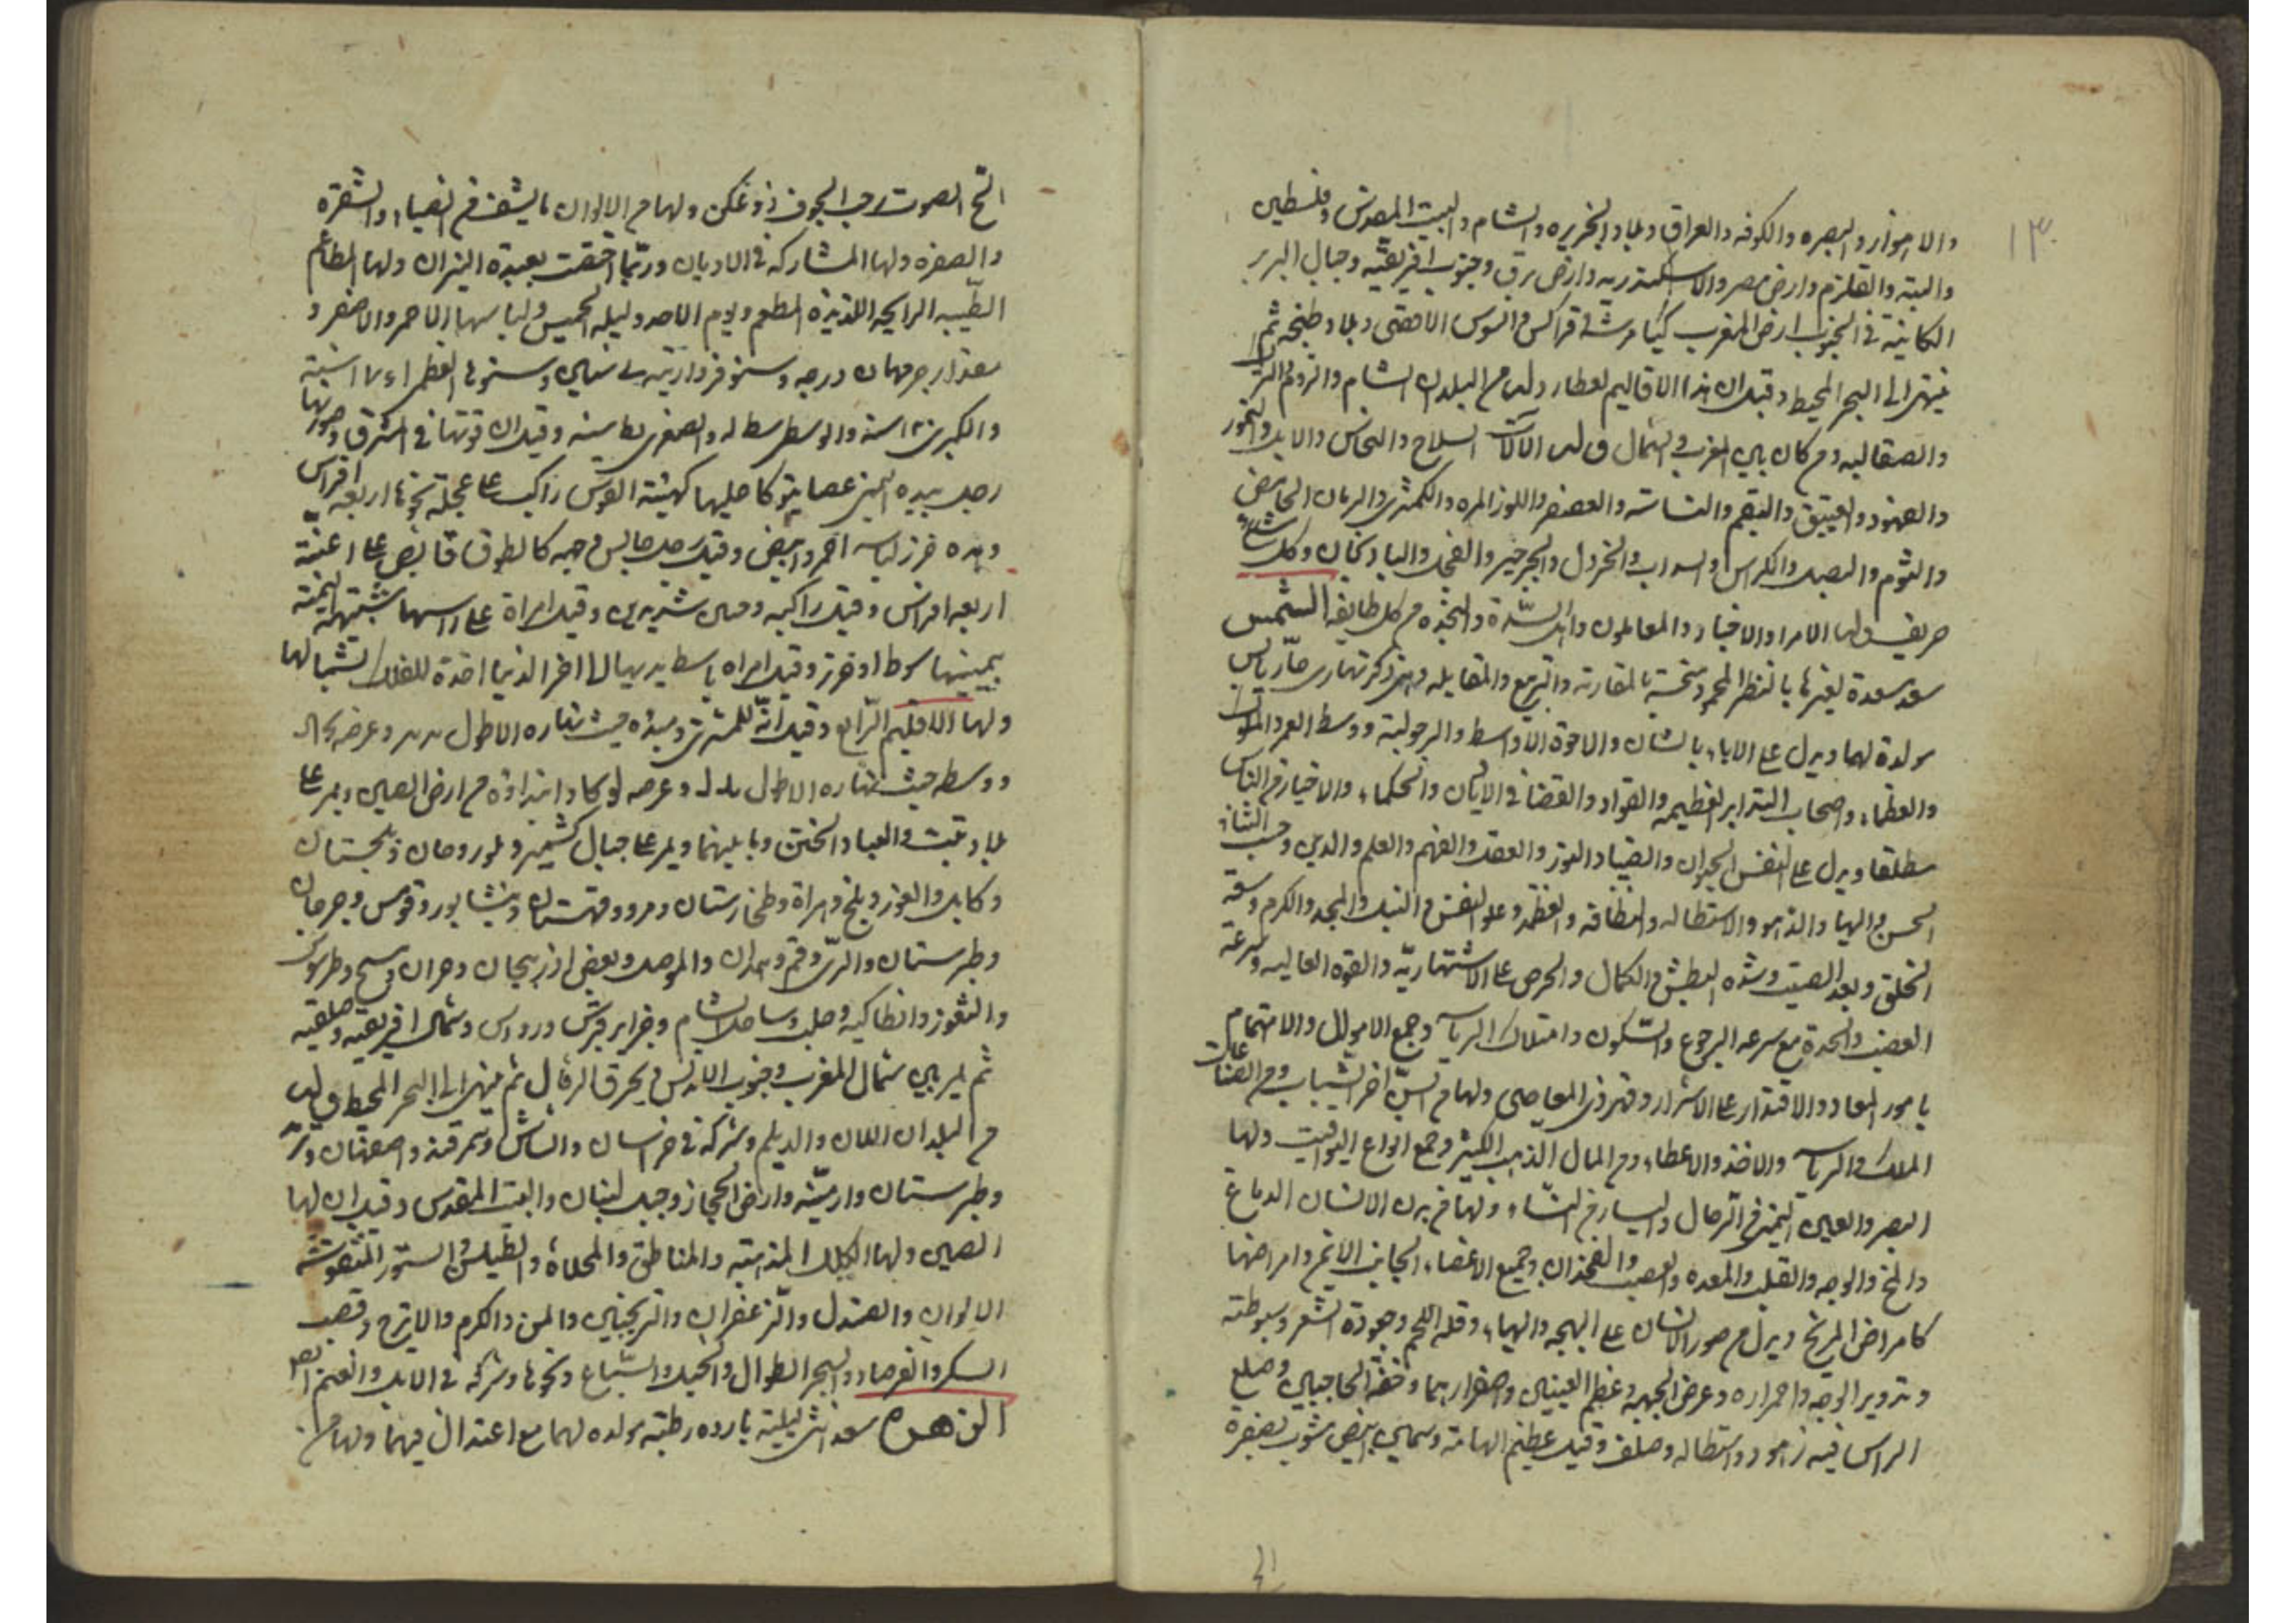 ١٣
والاهواز والبصره والكوفه والعراق وبلاد الجزيره والشام والبيت المقدس وفلسطين
والتيه والقلزم وارض مصر والاسكندريه وارض برقه وجنوب افريقيه وجبال البربر
الكاينة في الجنوب ارض المغرب والسوس الاقصى وبلاد طنجه ثم
ينتهى الى البحر المحيط وقيل ان هذا الاقاليم لعطارد وله من البلدان الشام والروم الى
والصقالبه ومن كان بين المغرب والشمال وله الالات السلاح والنحاس والابل والخمور
والفهود والعقيق والبقم والعصفر واللوز المره والكمثرى والرمان الحامض
والثوم والبصل والكراث والسداب والخردل والجرجير والفجل والباذنجان وكل شىء
حريف ولها الامرا والاخيار والمعاملون واهل الشدة والنجده من كل طايفه الشمس
سعد سعدة لغيرها بالنظر المحمود ومنحسة بالمقارنة والتربيع والمقابله وهى ذكر نهارى حار يابس
مولدة لهما ويدل على الاباء بالشان والاخوة الاواسط والرجولية ووسط العمر والملوك
والعظماء واصحاب التدابير العظيمه والقواد والقضا فى الاديان والحكماء والاخيار من الناس
مطلقا ويدل على النفس الحيوان والضيا والنور والعقل والفهم والعلم والدين وحب الثناء
الحسن والبها والزهو والاستطاله والنظافة والعظمة وعلو النفس والنبل والمجد والكرم وسعة
الخلق وبعد الصيت وشده البطش والكمال والحرص على الاشتهار والقوه الغالبه وسرعة
الغضب والحدة مع سرعه الرجوع والسكون وامتلاك الرياسة وجمع الاموال والاهتمام
بامور المعاد والاقتدار على الاشرار وقهر ذى المعاصى ولها من السن اخر الشباب ومن الصناعات
الملك والرياسة والاخذ والاعطاء ومن المال الذهب الكثير وجمع انواع اليواقيت ولها
البصر والعين اليمنى من الرجال واليسار من النساء ولها من بدن الانسان الدماغ
والمخ والوجه والقلب والمعده والعصب والفخذان وجميع الاعضاء الجانب الايمن وامراضها
كامراض المريخ ويدل من صور الانسان على البهجه والبهاء وقلة اللحم وجودة الشعر وسبوطته
وتدوير الوجه واحمراره وعرض الجبهه وعظم العينين واصفرارهما وخفة الحاجبين وصلع
الراس فيه زهو واستطاله وصلف وقيل عظيم الهامة وسمين ابيض مشوب بصفرة
ابح الصوت رحب الجوف ذو عكن ولها من الالوان ما يشف من الضياء والشقرة
والصفره ولها المشاركه فى الاديان وربما اختصت بعبدة النيران ولها المطاعم
الطيبه الرايحه اللذيذة المطعم ويوم الاحد وليلة الخميس ولباسها الاحمر والاصفر و
مقدار جرمها درجه وسنو فرداريته سنين وسنوها العظمى سنة
والكبرى ١٢٠ سنة والوسطى والصغرى يط سنه وقيل ان قوتها فى المشرق وصورتها
رجل بيده اليمنى عصا يتوكا عليها كهيئة القوس راكب على عجلة تجرها اربعه افراس
وبيده خرز لباسه احمر وابيض وقيل رجل جالس وجهه كالطوق قابض على اعنة
اربعه افراس وقيل راكبه وقيل امراة على راسها
بيمينها سوط او خرز وقيل امراه باسطه يديها الى اخر الدنيا اخذة للفلك بشمالها
ولها الاقليم الرابع وقيل انه للمشترى ومبدؤه حيث نهاره الاطول وعرضه
ووسطه حيث نهاره الاطول وعرضه وابتداؤه من ارض الصين ويمر على
بلاد تبت والختن وما بينهما ويمر على جبال كشمير وبلور وبدخشان
وكابل والغور وبلخ وهراة وطخارستان ومرو وقهستان ونيشابور وقومس وجرجان
وطبرستان والرى وقم وهمدان والموصل وبعض اذربيجان وحران ومنبج وطرسوس
والثغور وانطاكيه وحلب وساحل الشام وجزاير قبرس ورودس وشمال افريقيه وصقليه
ثم يمر بين شمال المغرب وجنوب الاندلس ثم ينتهى الى البحر المحيط وله
من البلدان اللان والديلم وشركة فى خراسان والشاش وسمرقند واصفهان
وطبرستان وارمينه وارض الحجاز وجبل لبنان والبيت المقدس وقيل ان لها
الصين ولها الكلل المذهبة والمناطق والمحلاة والطيلس والستور المنقوشة
الالوان والصندل والزعفران والترنجبين والمن والكرم والاترج وقصب
السكر والفرصاد والشجر الطوال والخيل والسباع ونحوها وشركة فى الابل والغنم ايضا
الزهره سعد انثى ليلية بارده رطبة مولده لهما مع اعتدال فيهما ولها من